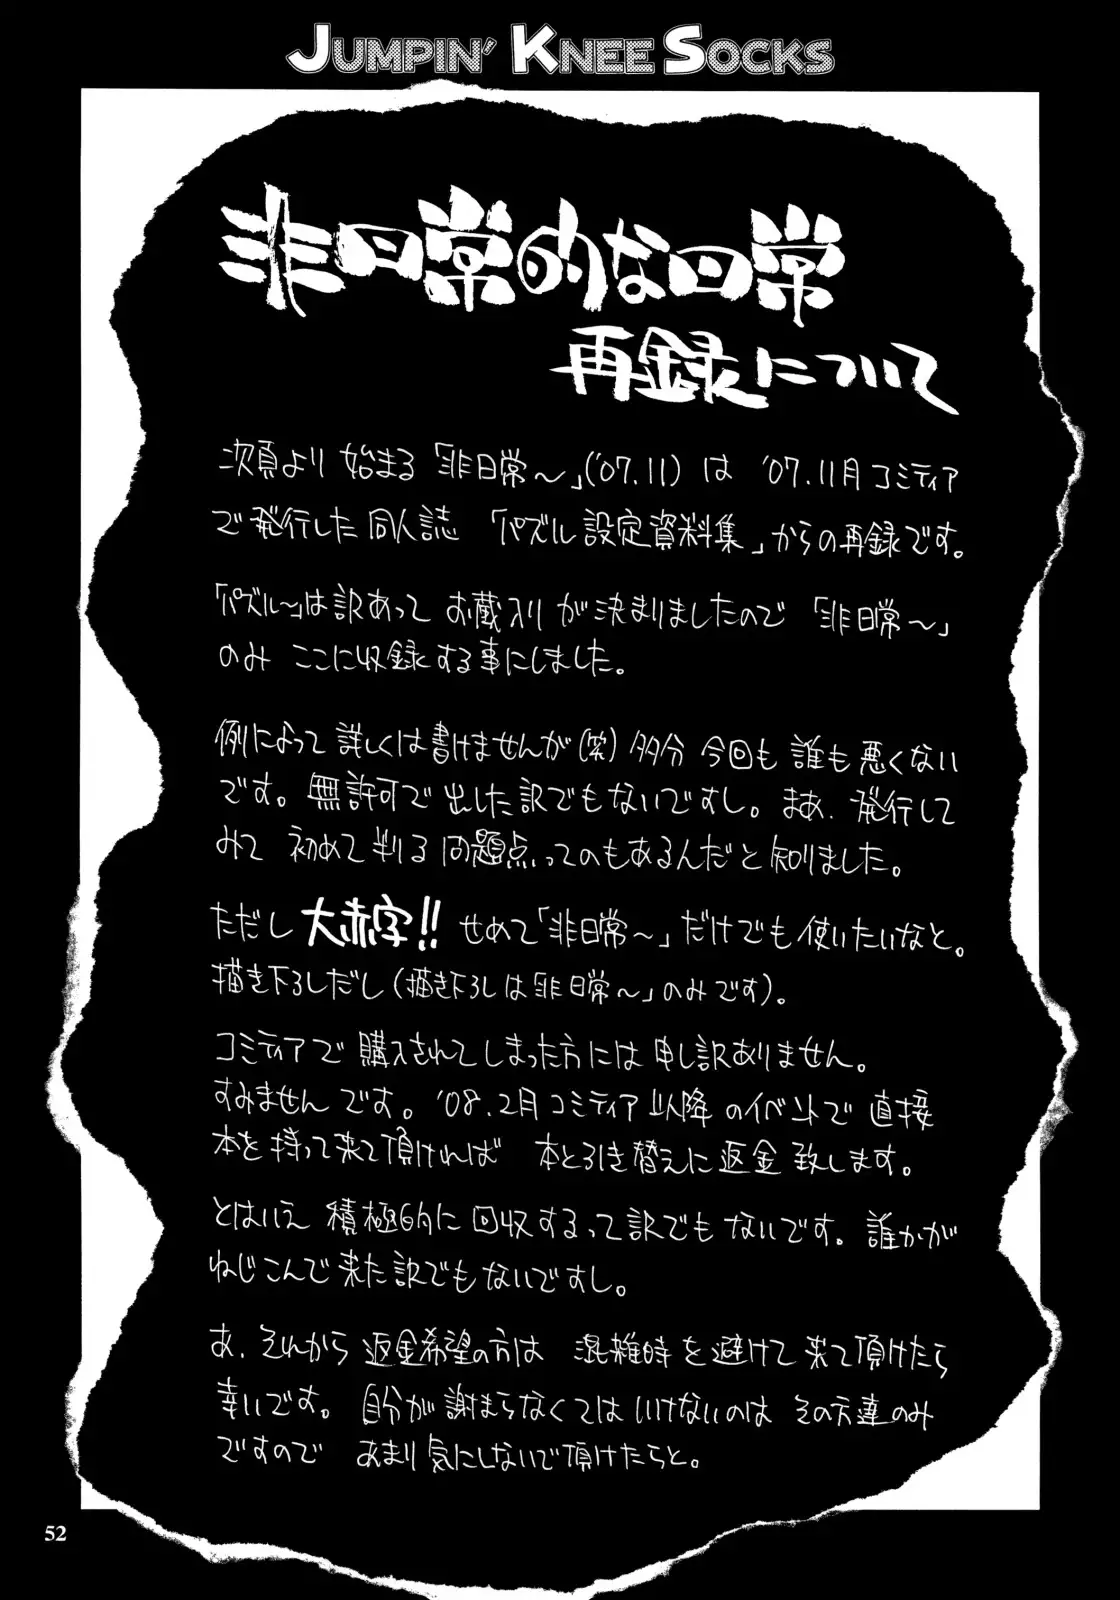 JUMPIN' KNEE SOCKS
非日常的な日常
再録について
次頁より始まる「非日常～」('07.11)は '07.11月コミティア
で発行した同人誌 「パズル設定資料集」からの再録です。
「パズル～」は訳あってお蔵入りが決まりましたので「非日常～」
のみ ここに収録する事にしました。
例によって詳しくは書けませんが(笑)多分今回も誰も悪くない
です。無許可で出した訳でもないですし。まあ、発行して
みて 初めて判る問題点ってのもあるんだと知りました。
ただし大赤字!! せめて「非日常～」だけでも使いたいなと。
描き下ろしだし(描き下ろしは「非日常～」のみです)。
コミティアで購入されてしまった方には申し訳ありません。
すみませんです。'08.2月コミティア以降のイベントで直接
本を持って来て頂ければ 本と引き替えに返金致します。
とはいえ積極的に回収するって訳でもないです。誰かが
ねじこんで来た訳でもないですし。
あ、それから返金希望の方は 混雑時を避けて来て頂けたら
幸いです。自分が謝まらなくてはいけないのはその方達のみ
ですので あまり気にしないで頂けたらと。
52